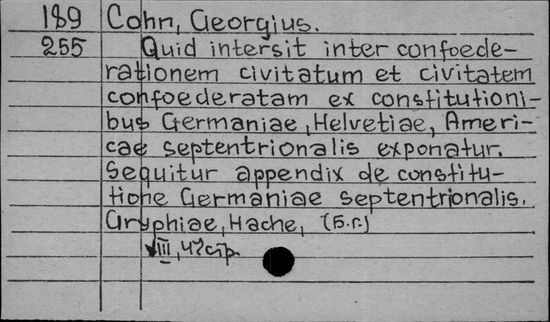 189 Cohn, Georgius.
255 Quid intersit inter confoede-
rationem civitatum et civitatem
confoederatam ex constitutioni-
bus Germaniae, Helvetiae, Ameri-
cae septentrionalis exponatur.
Sequitur appendix de constitu-
tione Germaniae septentrionalis.
Gryphiae, Hache, (б.г.)
VIII, 42 стр.